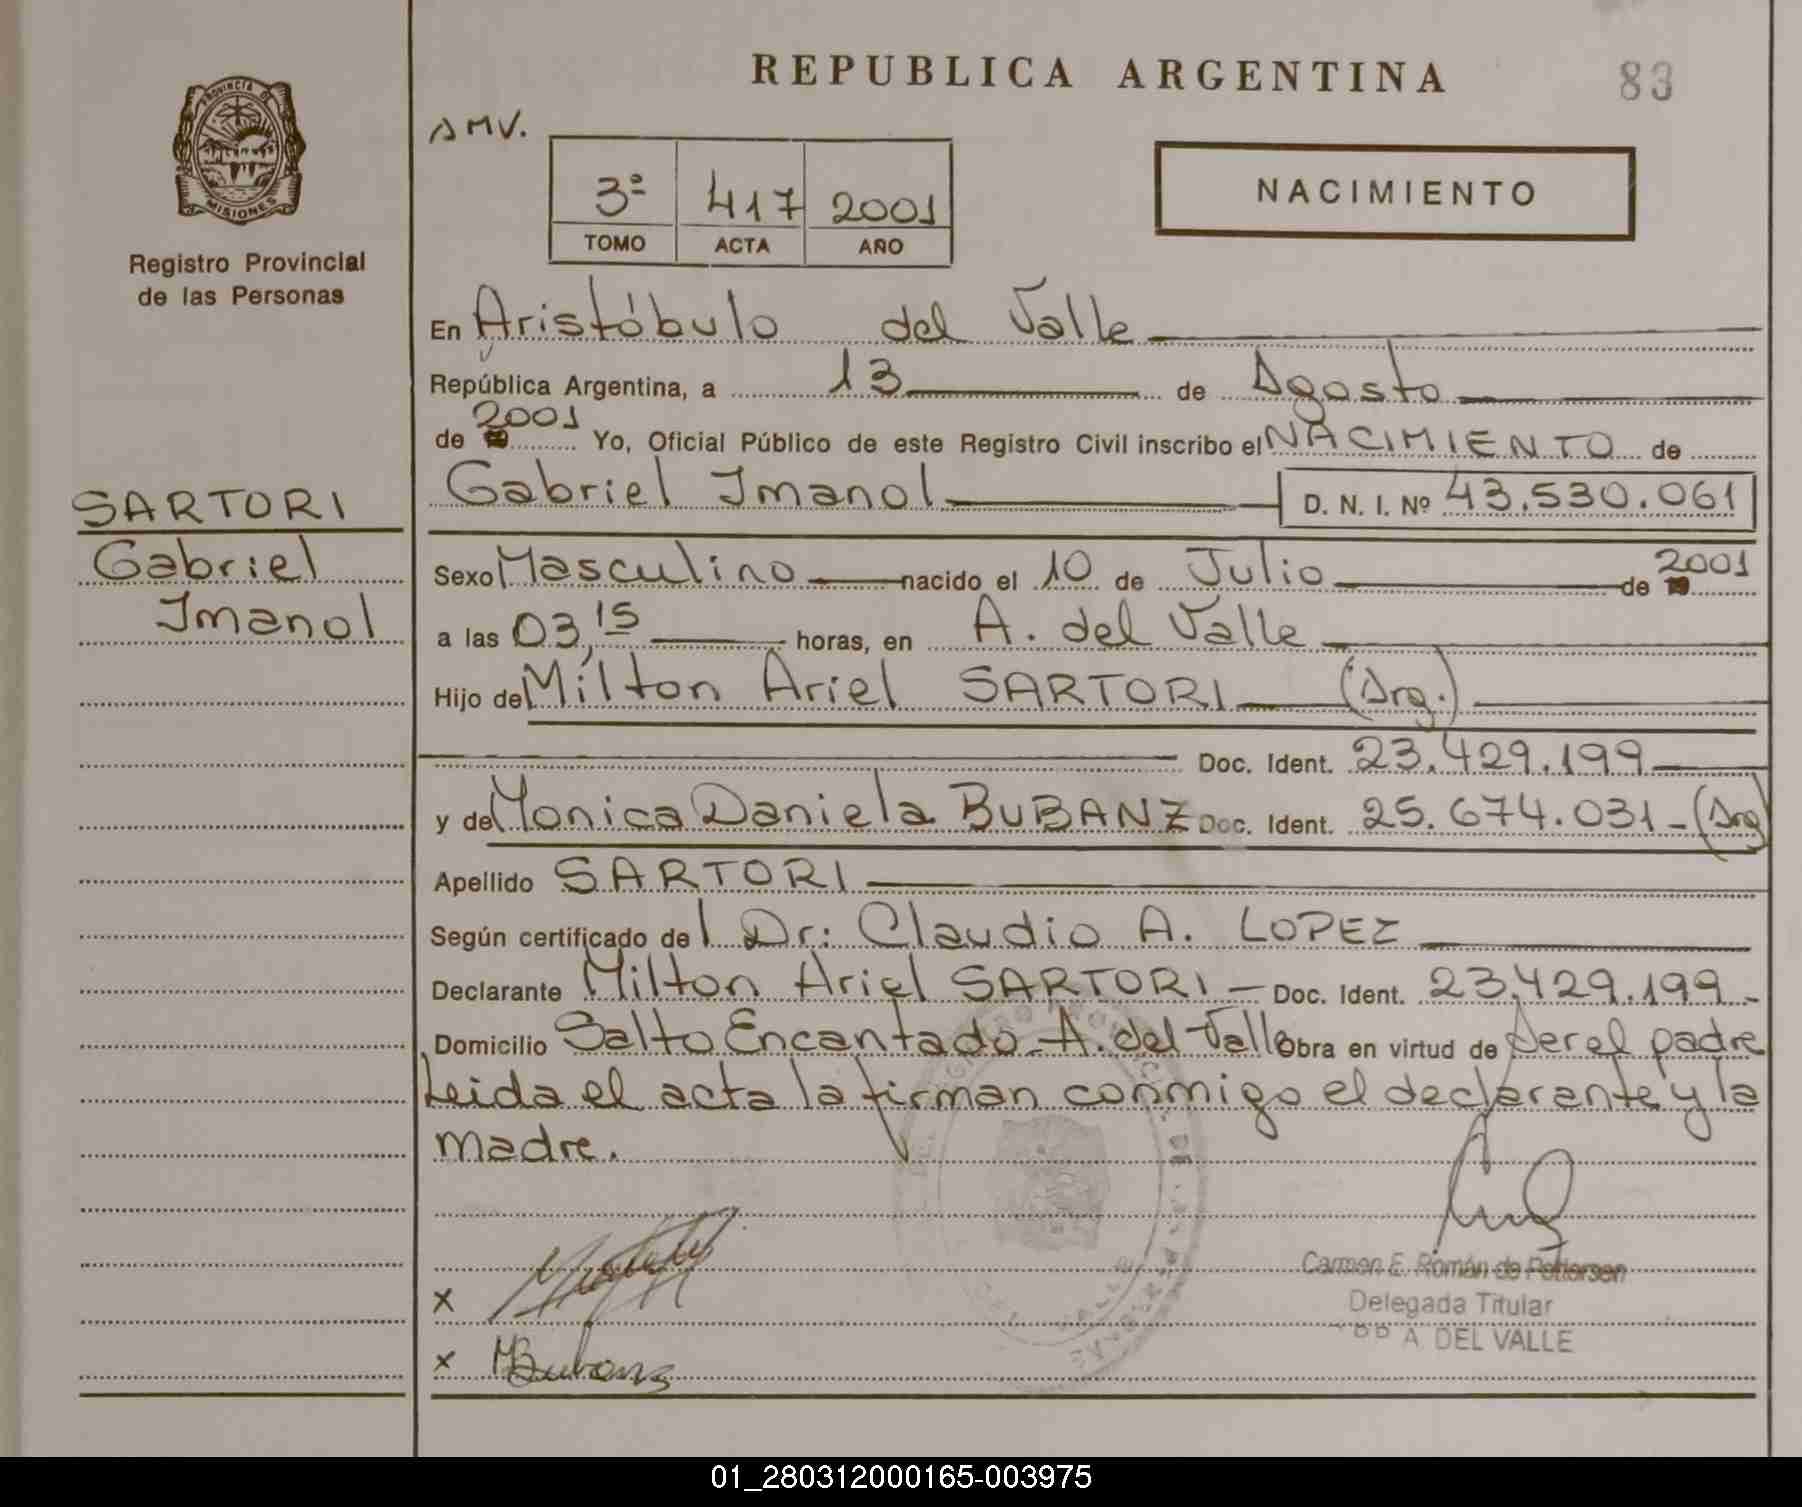 REPUBLICA ARGENTINA
83
PROVINCIA DE
MISIONES
Registro Provincial
de las Personas
AMV.
3º 417 2001
TOMO ACTA AÑO
NACIMIENTO
En Aristóbulo del Valle
República Argentina, a 13 de Agosto
de 2001 Yo, Oficial Público de este Registro Civil inscribo el NACIMIENTO de
Gabriel Imanol D. N. I. Nº 43.530.061
SARTORI
Gabriel
Imanol
Sexo Masculino nacido el 10 de Julio de 2001
a las 03,15 horas, en A. del Valle
Hijo de Milton Ariel SARTORI (Arg.)
Doc. Ident. 23.429.199
y de Monica Daniela BUBANZ Doc. Ident. 25.674.031 - (Arg)
Apellido SARTORI
Según certificado del Dr: Claudio A. LOPEZ
Declarante Milton Ariel SARTORI - Doc. Ident. 23.429.199 -
Domicilio Salto Encantado - A. del Valle obra en virtud de Ser el padre
Leida el acta la firman conmigo el declarante y la
madre.
Carmen E. Román de Pettersen
Delegada Titular
A. DEL VALLE
x
x MBubanz
01_280312000165-003975